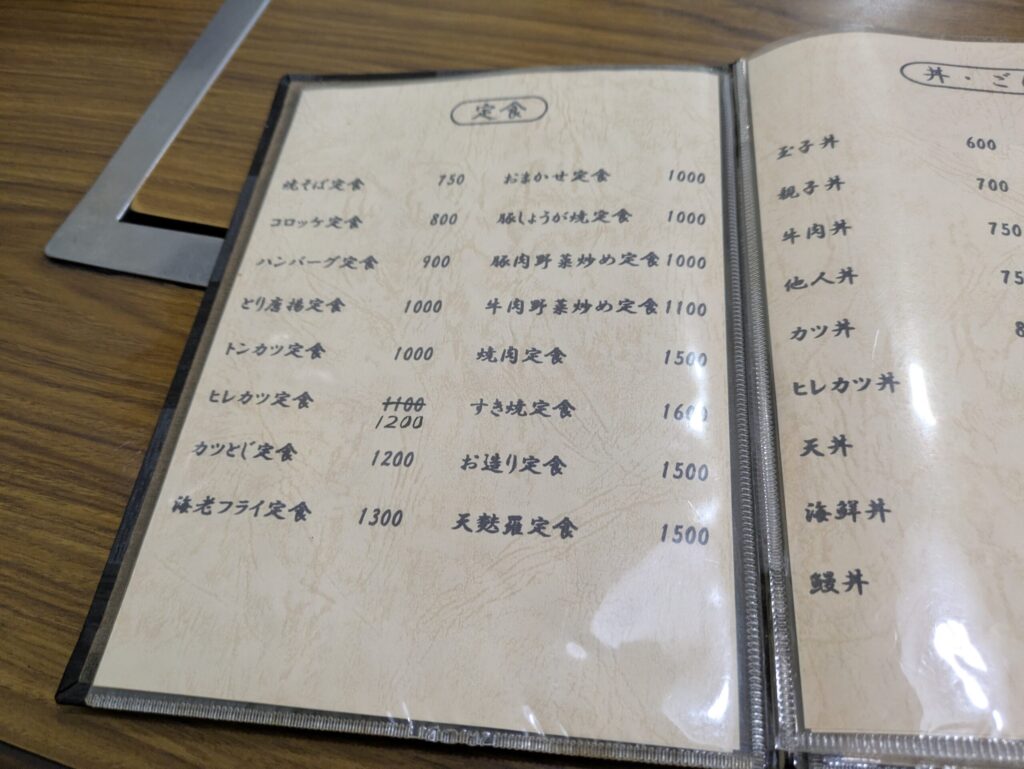 定食
焼そば定食 750
コロッケ定食 800
ハンバーグ定食 900
とり唐揚定食 1000
トンカツ定食 1000
ヒレカツ定食 1100
1200
カツとじ定食 1200
海老フライ定食 1300
おまかせ定食 1000
豚しょうが焼定食 1000
豚肉野菜炒め定食 1000
牛肉野菜炒め定食 1100
焼肉定食 1500
すき焼定食 1600
お造り定食 1500
天麩羅定食 1500
丼・ご
玉子丼 600
親子丼 700
牛肉丼 750
他人丼 75
カツ丼 8
ヒレカツ丼
天丼
海鮮丼
鰻丼